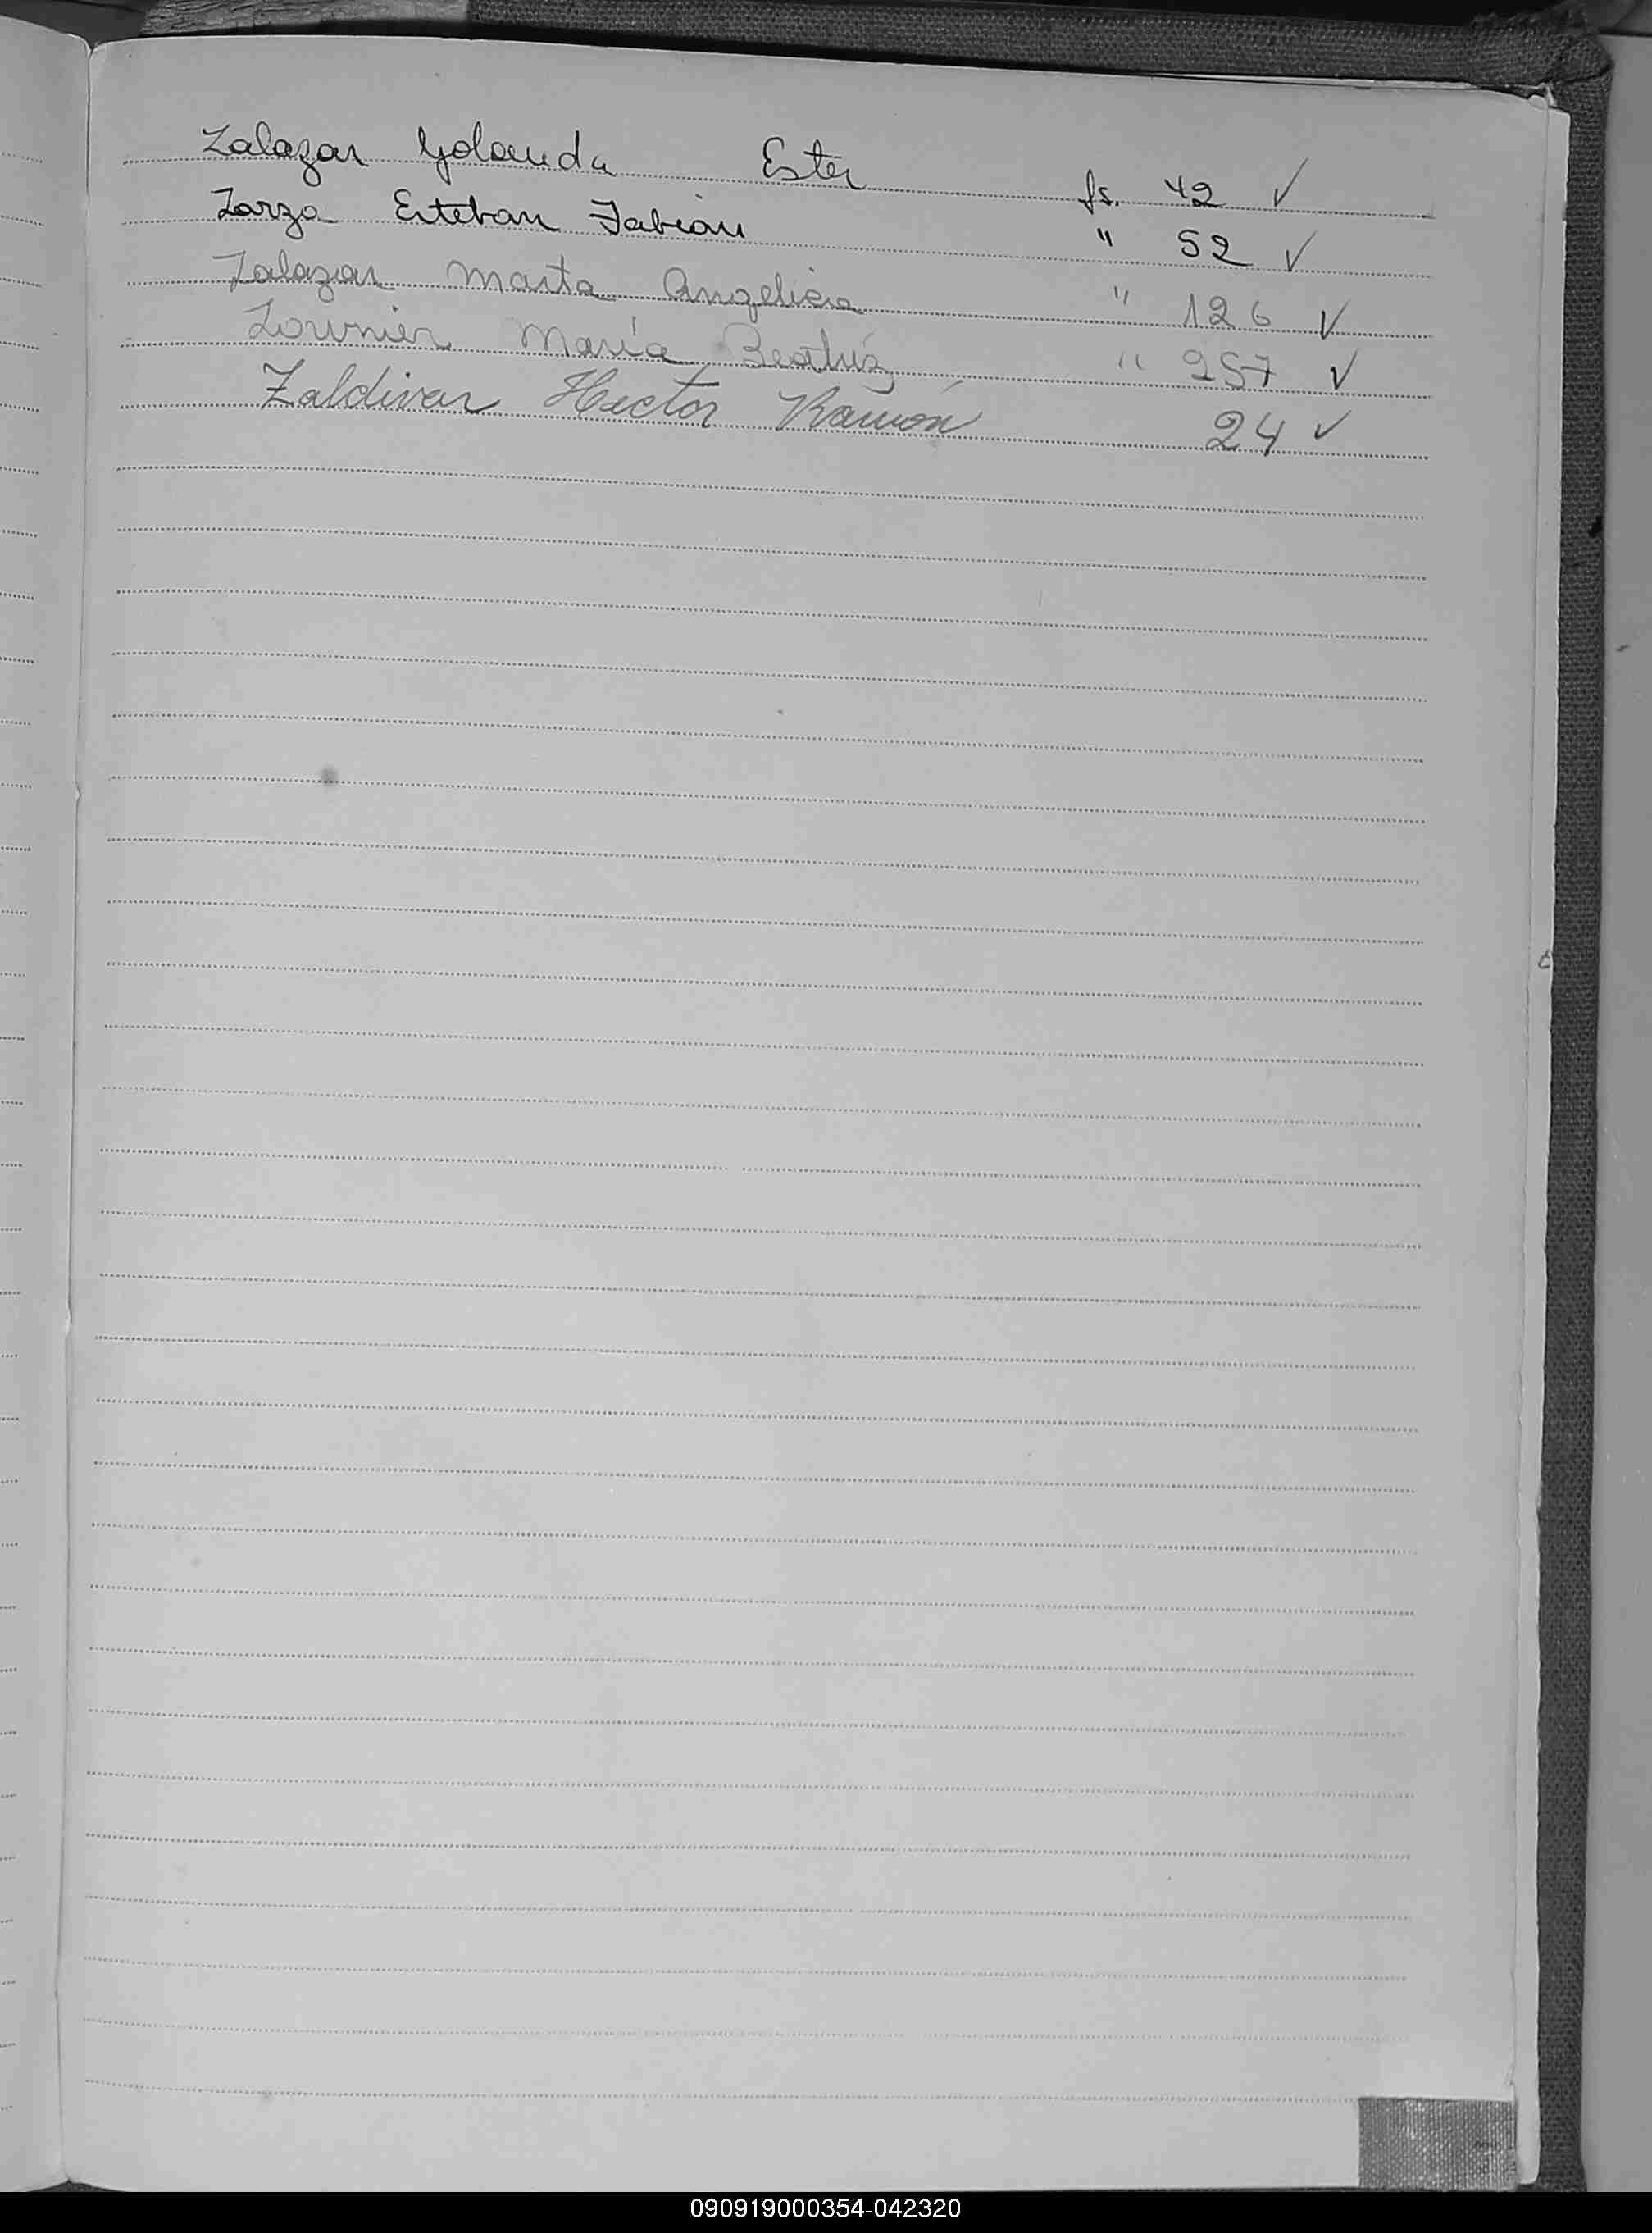 Zalazar Yolanda Ester fs. 42 ✓
Zarza Esteban Fabián " 52 ✓
Zalazar Marta Angelica " 126 ✓
María Beatríz " 257 ✓
Zaldivar Hector Ramón 24 ✓
090919000354-042320